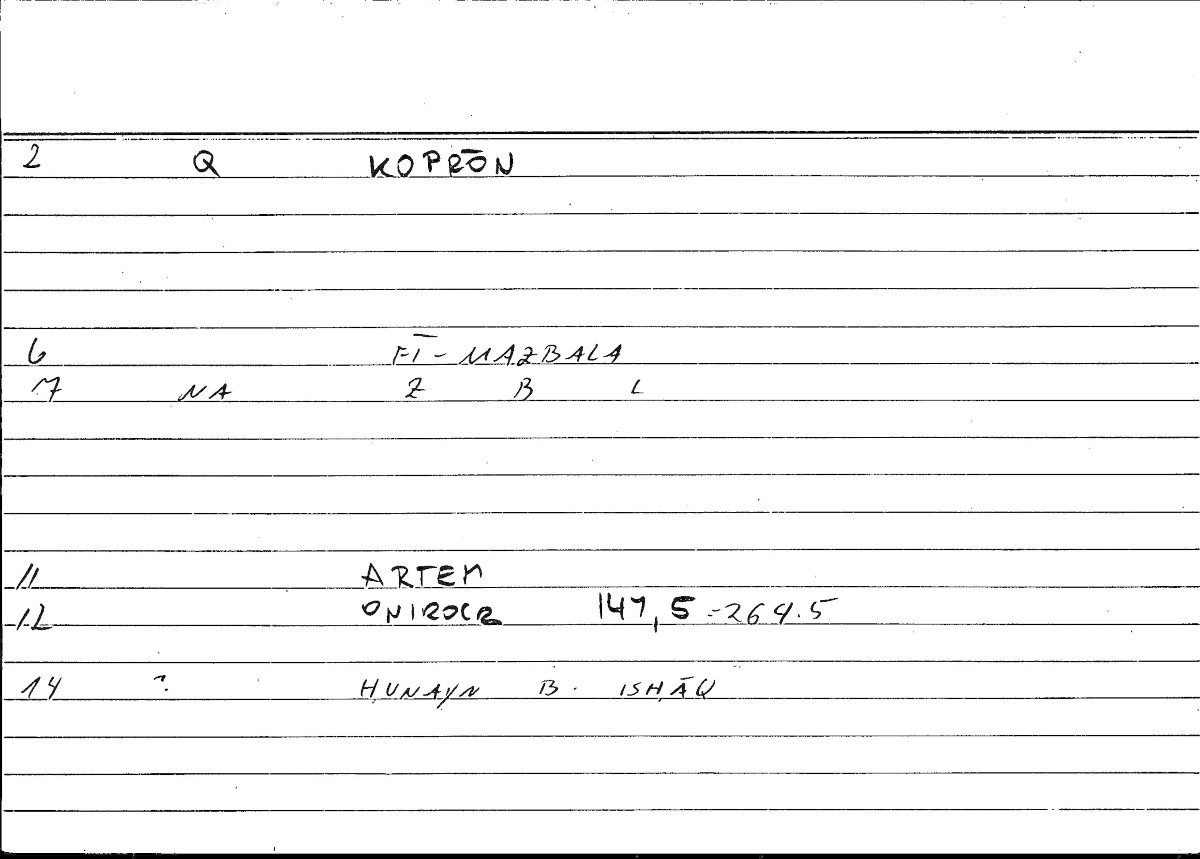 2 Q KOPRŌN
6 FĪ-MAZBALA
7 NA Z B L
11 ARTEM
12 ONIROCR 147,5=264.5
14 ? ḤUNAYN B. ISḤĀQ